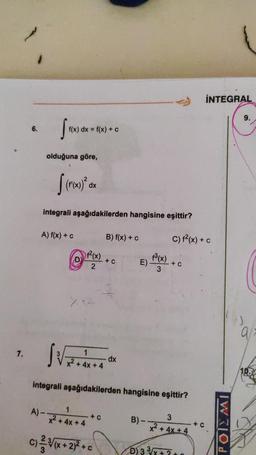 İNTEGRAL
6. ∫ f(x) dx = f(x) + c
olduğuna göre,
∫ (f'(x))² dx
integrali aşağıdakilerden hangisine eşittir?
A) f(x) + c B) f(x) + c C) f²(x) + c
D) f²(x)/2 + c E) f³(x)/3 + c
7. ∫ ∛(1/(x² + 4x + 4)) dx
integrali aşağıdakilerden hangisine eşittir?
A) - 1/(x² + 4x + 4) + c B) - 3/(x² + 4x + 4) + c
C) 2/3 ∛(x + 2)² + c D) 3 ∛x + 2 + c
9.
10.
POLİMİ